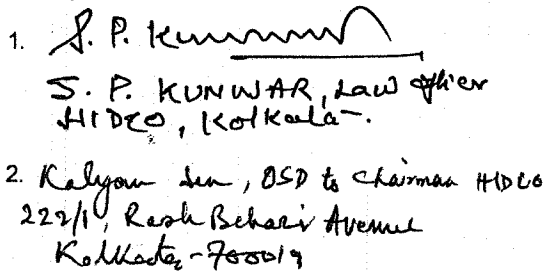 1. S. P. Kunwar
S. P. KUNWAR, Law Officer
HIDCO, Kolkata.
2. Kalyan Sen, OSD to Chairman HIDCO
222/1, Rash Behari Avenue
Kolkata-700019